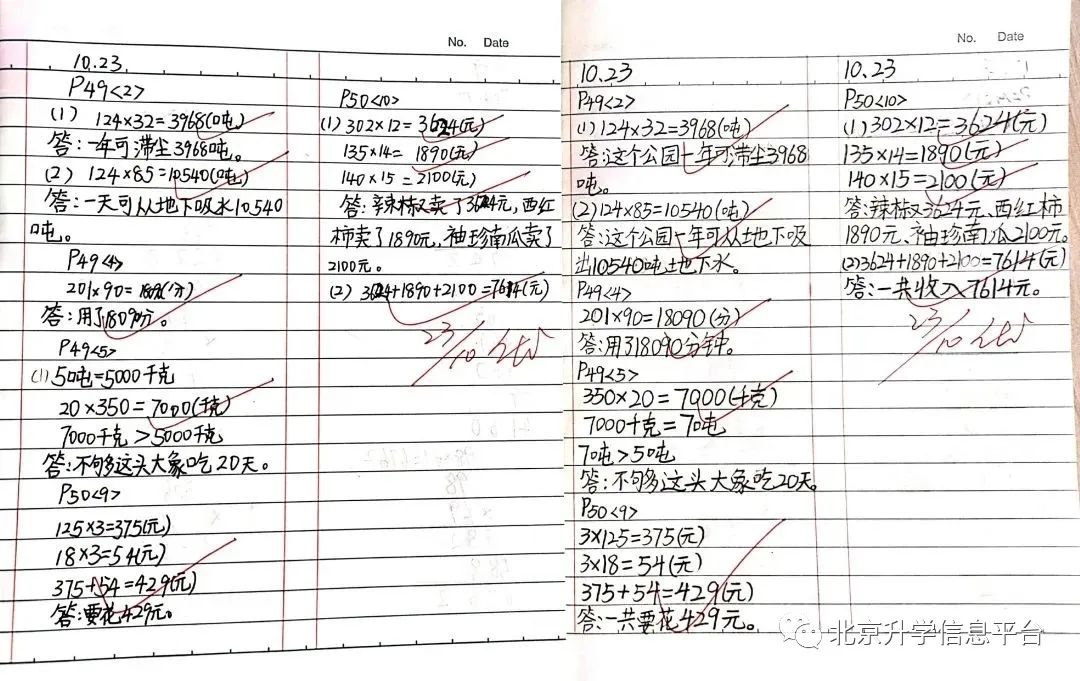 No. Date
10.23
P49<2>
(1) 124×32=3968(吨)
答:一年可滞尘3968吨。
(2) 124×85=10540(吨)
答:一天可从地下吸水10540
吨。
P49<4>
201×90=18090(分)
答:用了18090分。
P49<5>
(1)5吨=5000千克
20×350=7000(千克)
7000千克>5000千克
答:不够多这头大象吃20天。
P50<9>
125×3=375(元)
18×3=54(元)
375+54=429(元)
答:要花429元。
P50<10>
(1)302×12=3624(元)
135×14=1890(元)
140×15=2100(元)
答:辣椒卖了3624元,西红
柿卖了1890元,袖珍南瓜卖了
2100元。
(2) 3624+1890+2100=7614(元)
23/10
No. Date
10.23
P49<2>
(1)124×32=3968(吨)
答:这个公园一年可滞尘3968
吨。
(2)124×85=10540(吨)
答:这个公园一年可从地下吸
出10540吨地下水。
P49<4>
201×90=18090(分)
答:用了18090分钟。
P49<5>
350×20=7000(千克)
7000千克=7吨
7吨>5吨
答:不够多这头大象吃20天。
P50<9>
3×125=375(元)
3×18=54(元)
375+54=429(元)
答:一共要花429元。
10.23
P50<10>
(1)302×12=3624(元)
135×14=1890(元)
140×15=2100(元)
答:辣椒3624元、西红柿
1890元、袖珍南瓜2100元。
(2)3624+1890+2100=7614(元)
答:一共收入7614元。
23/10
北京升学信息平台